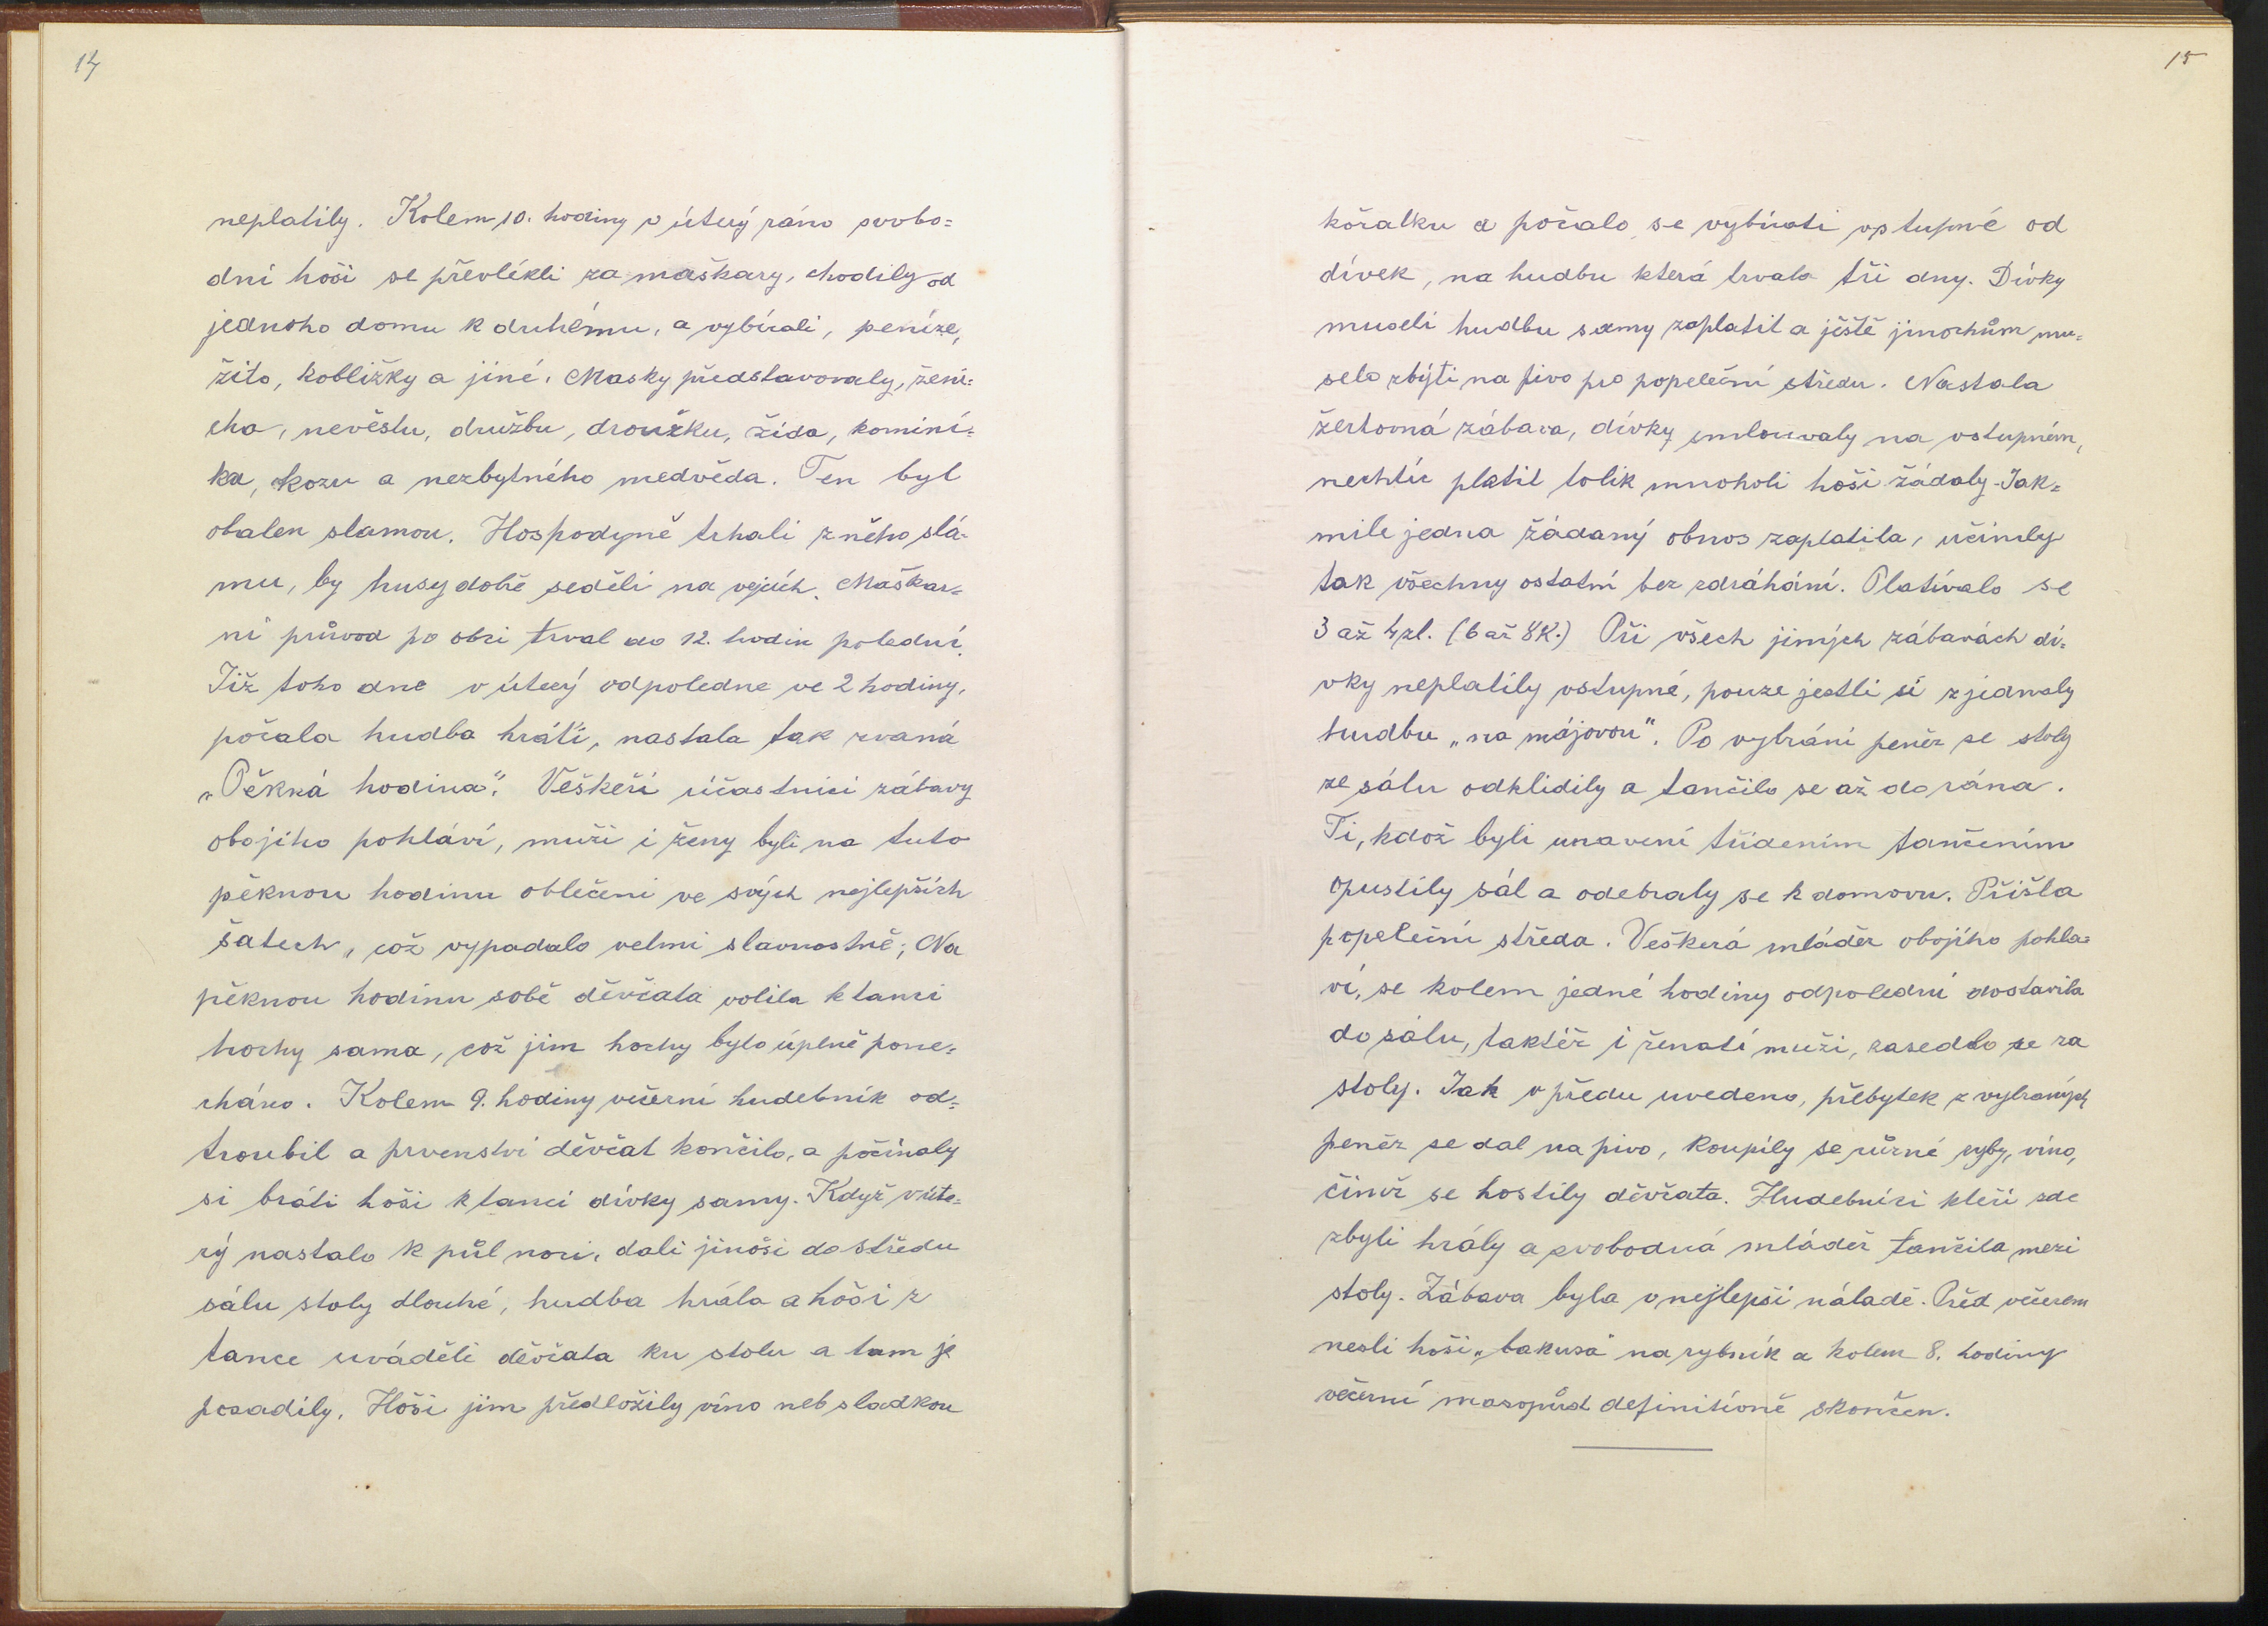 14
neplatily. Kolem 10. hodiny v úterý ráno svobo=
dní hoši se převlékli za maškary, chodily od
jednoho domu k druhému, a vybírali, peníze,
žito, koblížky a jiné. Masky představovaly, ženi=
cha, nevěstu, družbu, droužku, žida, komini=
ka, kozu a nezbytného medvěda. Ten byl
obalen slamou. Hospodyně trhali z něho slá-
mu, by husy dobře seděli na vejcích. Maškar=
ní průvod po obci trval do 12. hodin polední.
Již toho dne v úterý odpoledne ve 2 hodiny,
počala hudba hráti, nastala tak zvaná
„Pěkná hodina“. Veškeří účastnici zábavy
obojího pohlaví, muži i ženy byli na tuto
pěknou hodinu oblečeni ve svých nejlepších
šatech, což vypadalo velmi slavnostně; Na
pěknou hodinu sobě děvčata volila k tanci
hochy sama, což jim hochy bylo úplně pone=
cháno. Kolem 9. hodiny večerní hudebník od=
troubil a prvenství děvčat končilo, a počínaly
si bráti hoši k tanci dívky samy. Když v úte=
rý nastalo k půl noci, dali jinoši do středu
sálu stoly dlouhé, hudba hrála a hoši z
tance uváděli děvčata ku stolu a tam je
posadily. Hoši jim předložily víno neb sladkou
15
kořalku a počalo se vybírati vstupné od
dívek, na hudbu která trvala tři dny. Dívky
museli hudbu samy zaplatit a ještě jinochům mu=
selo zbýti na pivo pro popeleční středu. Nastala
žertovná zábava, dívky smlouvaly na vstupném,
nechtíc platit tolik mnoholi hoši žádaly. Jak=
mile jedna žádaný obnos zaplatila, učinily
tak všechny ostatní bez zdráhání. Platívalo se
3 až 4 zl. (6 až 8 K.) Při všech jiných zábavách dí=
vky neplatily vstupné, pouze jestli si zjednaly
hudbu „na májovou“. Po vybrání peněz se stoly
ze sálu odklidily a tančilo se až do rána.
Ti, kdož byli unavení třídením tančením
opustily sál a odebraly se k domovu. Přišla
popeleční středa. Veškerá mláděž obojího pohla=
ví, se kolem jedné hodiny odpolední dostavila
do sálu, taktéž i ženatí muži, zasedlo se za
stoly. Jak v předu uvedeno, přebytek z vybraných
peněz se dal na pivo, koupily se různé ryby, víno,
čímž se hostily děvčata. Hudebníci kteří zde
zbyli hrály a svobodná mláděž tančila mezi
stoly. Zábava byla v nejlepší náladě. Před večerem
nesli hoši „bakusa“ na rybník a kolem 8. hodiny
večerní masopůst definitivně skončen.